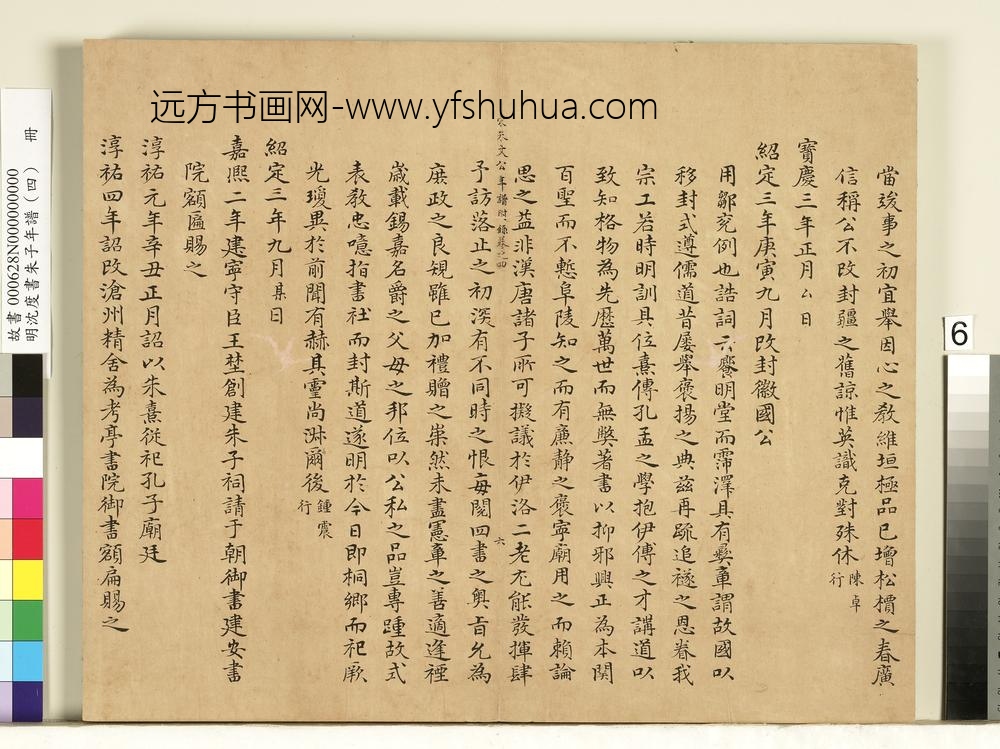 远方书画网-www.yfshuhua.com
當造事之初宜舉因心之教維垣極品已增松檟之春廣
信稱公不改封疆之舊諒惟英識克對殊休 陳卓行
寶慶三年正月厶日
紹定三年庚寅九月改封徽國公
用鄒兖例也誥詞云饗明堂而霈澤具有彝章謂故國以
移封式遵儒道昔屢舉褒揚之典茲再疏追襚之恩眷我
宗工若時明訓具位熹傳孔孟之學抱伊傅之才講道以
致知格物為先歷萬世而無獘著書以抑邪興正為本関
百聖而不慙阜陵知之而有廉静之褒寧廟用之而賴論
思之益非漢唐諸子所可擬議於伊洛二老尤能發揮肆
宋朱文公年譜附錄卷之四
六
予訪落止之初深有不同時之恨每閱四書之奥旨允為
庶政之良規雖已加禮贈之崇然未盡憲章之善適逢禋
歲載錫嘉名爵之父母之邦位以公私之品豈專踵故式
表敎忠噫指書社而封斯道遂明於今日即桐鄉而祀厥
光瓊異於前聞有赫其靈尚淋爾後 鍾震行
紹定三年九月某日
嘉熈二年建寧守臣王埜創建朱子祠請于朝御書建安書
院額匾賜之
淳祐元年辛丑正月詔以朱熹從祀孔子廟廷
淳祐四年詔改滄州精舍為考亭書院御書額扁賜之
故書000628N000000000
明沈度書朱子年譜（四） 冊
6